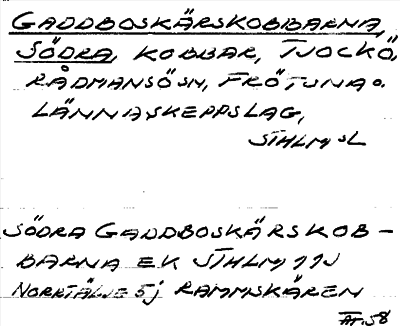 GADDBOSKÄRSKOBBARNA,
SÖDRA, KOBBAR, TJOCKÖ,
RÅDMANSÖ SN, FRÖTUNA O.
LÄNNA SKEPPSLAG,
STHLMS L
SÖDRA GADDBOSKÄRSKOB-
BARNA EK STHLM 11J
NORRTÄLJE 5j RAMMSKÄREN